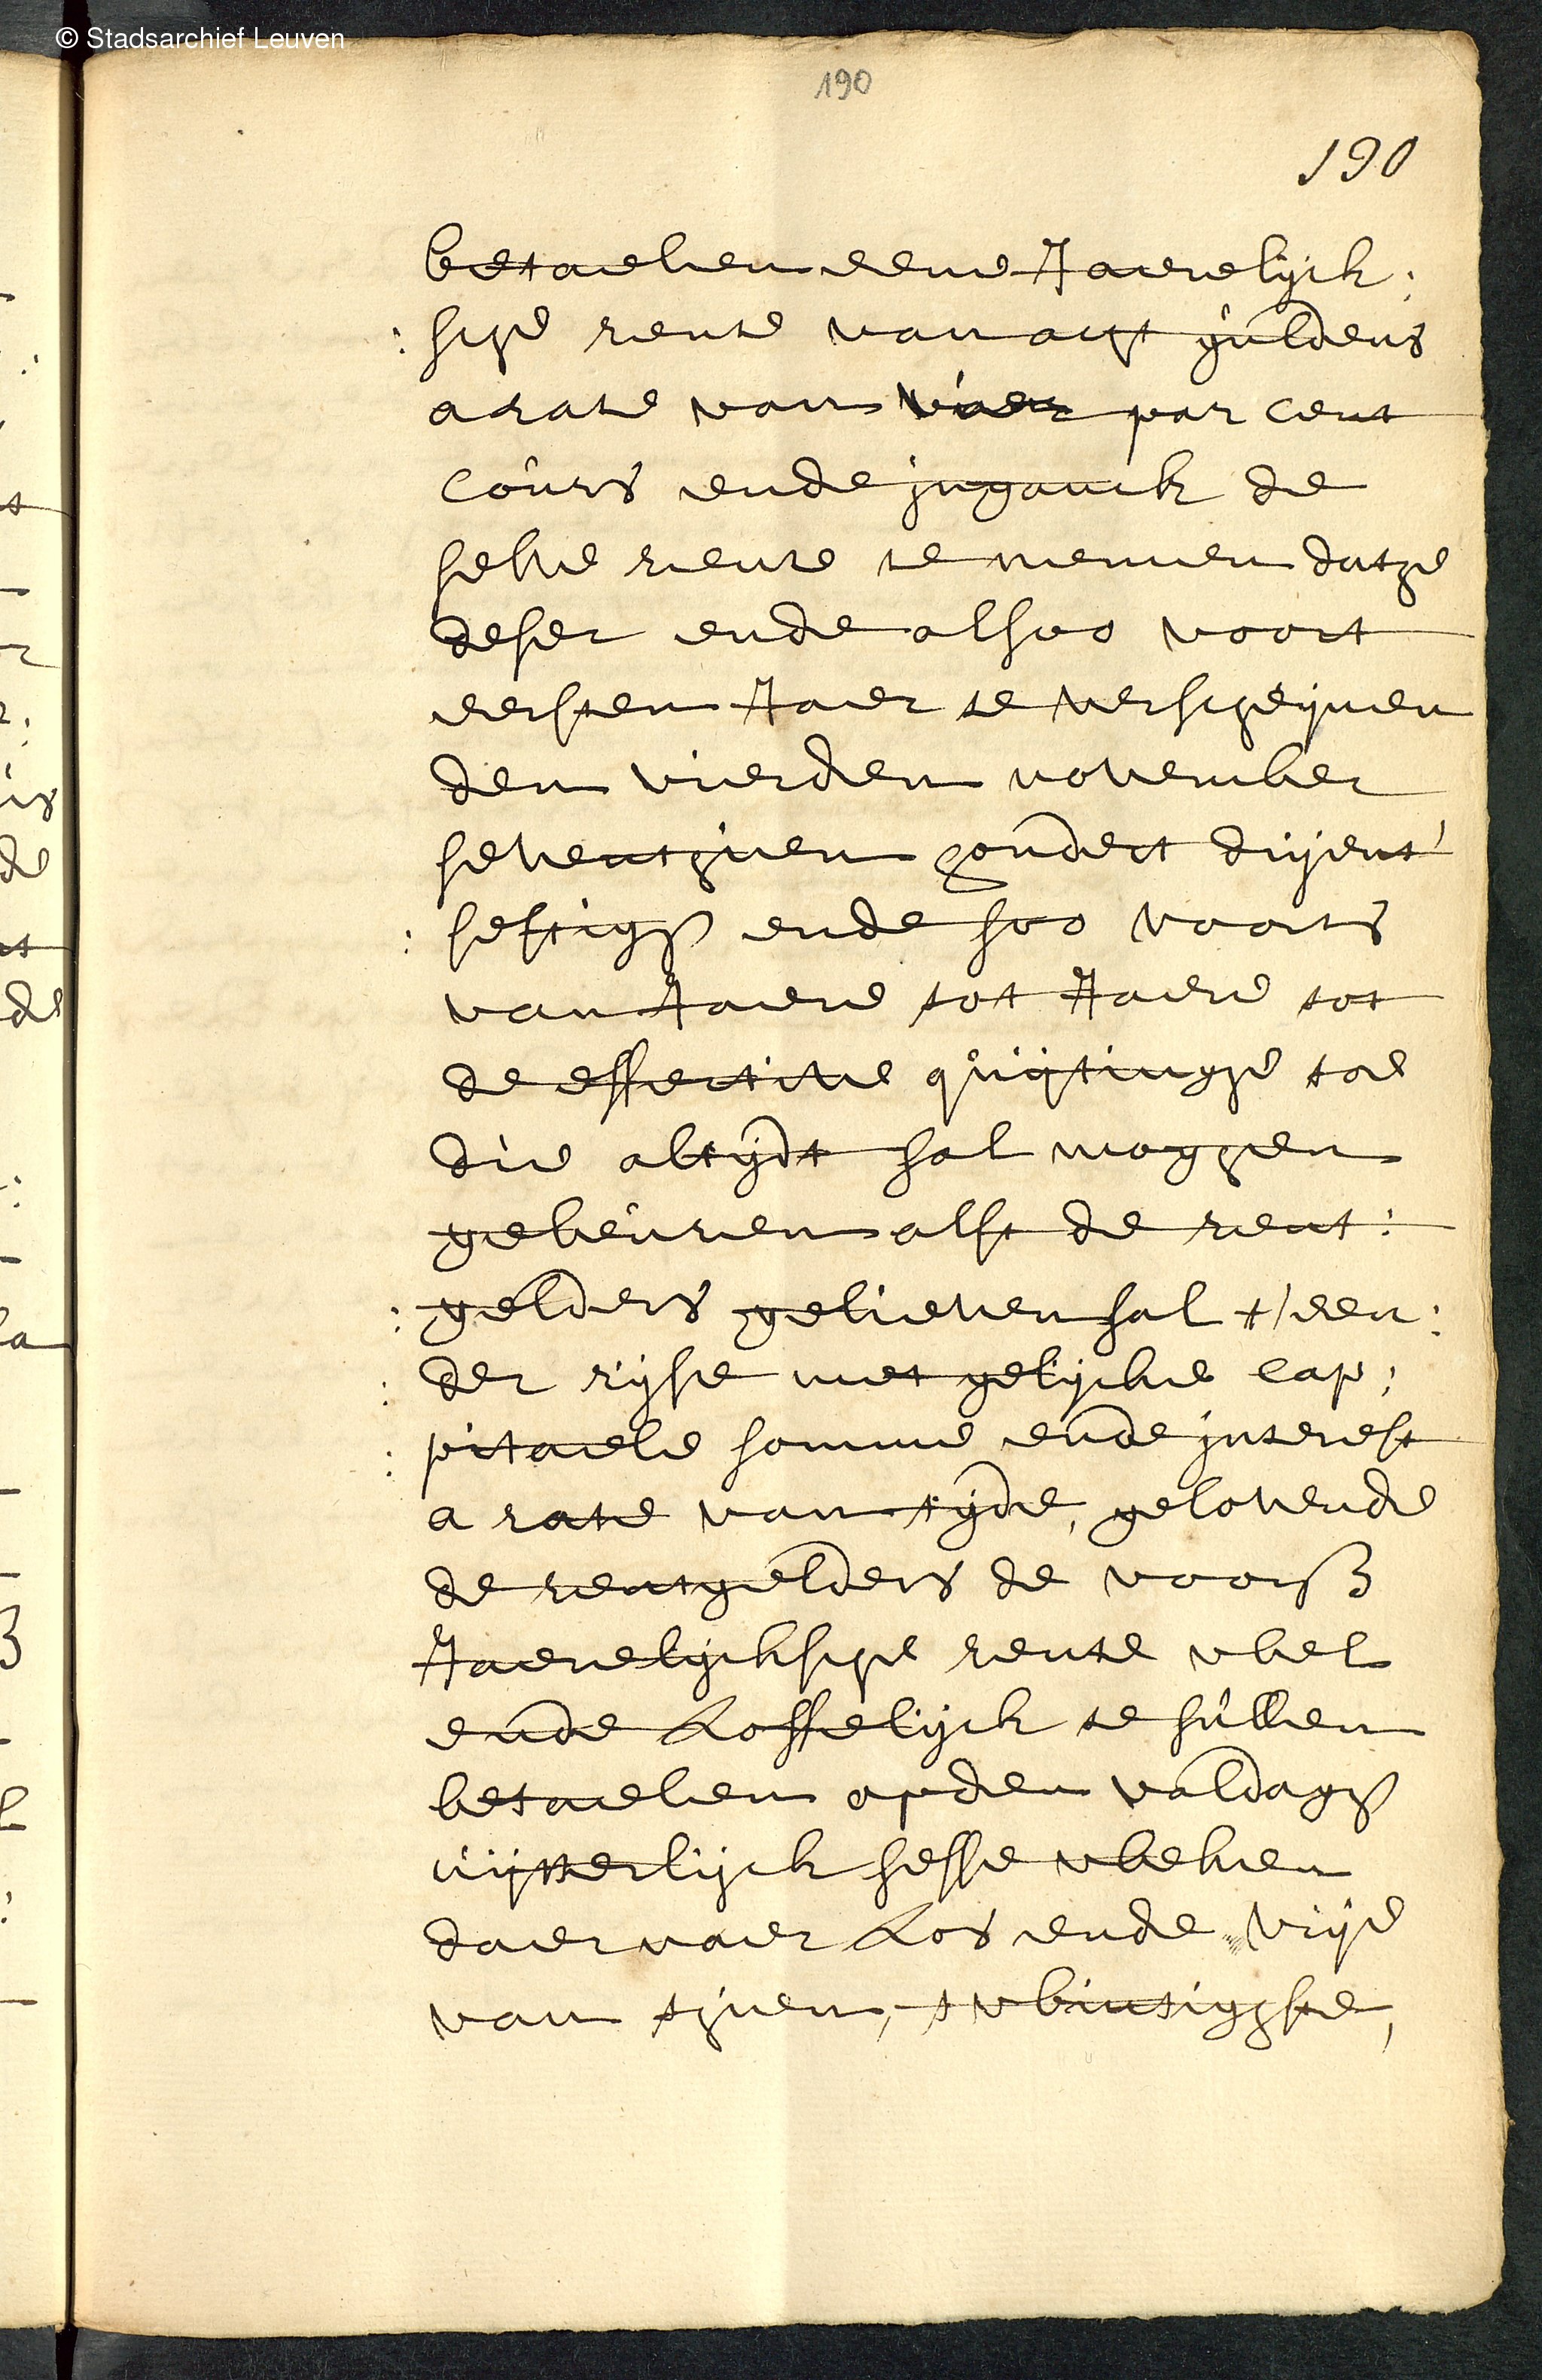 © Stadsarchief Leuven
190
190
betaelen eene Jaerelijck:
:sche rente van acht guldens
a rate van vier par cent
cours ende inganck de
selve rente te nemen datze
deser ende alsoo voort
eersten Jaer te verscheijnen
den vierden november
seventhien hondert drijent
:seftigh ende soo voorts
van Jaere tot Jaere tot
de effective quijtinghe toe
die altijdt sal moghen
gebeuren alst de rent:
:gelders gelieven sal t'een:
:der rijse met gelijcke cap:
:pitaele somme ende interest
a rate van tijde, gelovende
de rentgelders de voors
Jaerelijcksche rente wel
ende Loffelijck te sullen
betaelen op den valdagh
uijtterlijck sesse weken
daer naer Los ende vrije
van thien, twintighste,